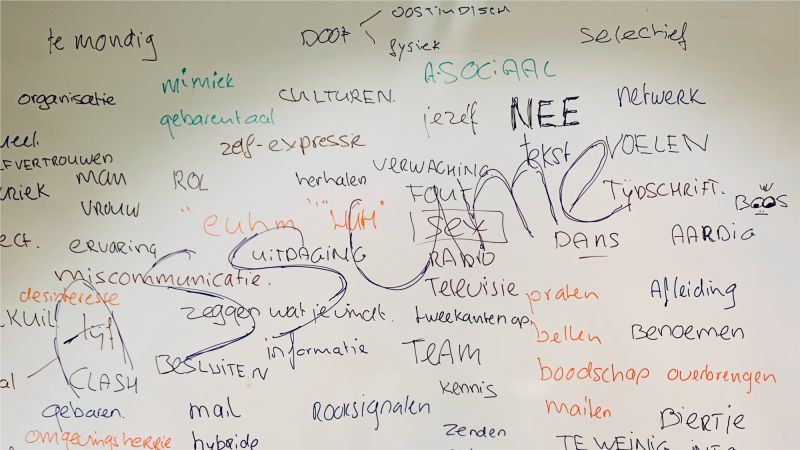 te mondig
DOOF
OOSTINDISCH
fysiek
selectief
organisatie
mimiek
gebarentaal
CULTUREN.
A-SOCIAAL
jezelf
NEE
netwerk
zelf-expressie
tekst
VOELEN
FVERTROUWEN
man
ROL
herhalen
VERWACHING
FOUT
TIJDSCHRIFT.
BOOS
VROUW
"euhm"
"HUH"
sex
DANS
AARDIG
ect.
ERVARING
UITDAGING
RADIO
miscommunicatie.
desinteresse
TELEVISIE
praten
Afleiding
KUIL
lijf
zeggen wat je vindt.
tweekanten op
bellen
Benoemen
informatie
BESLUITEN
TEAM
CLASH
boodschap overbrengen
kennis
gebaren.
mail
ROOKSIGNALEN
mailen
BIERTJE
omgevingsherrie
hybride
zenden
TE WEINIG INFO
ASSUME